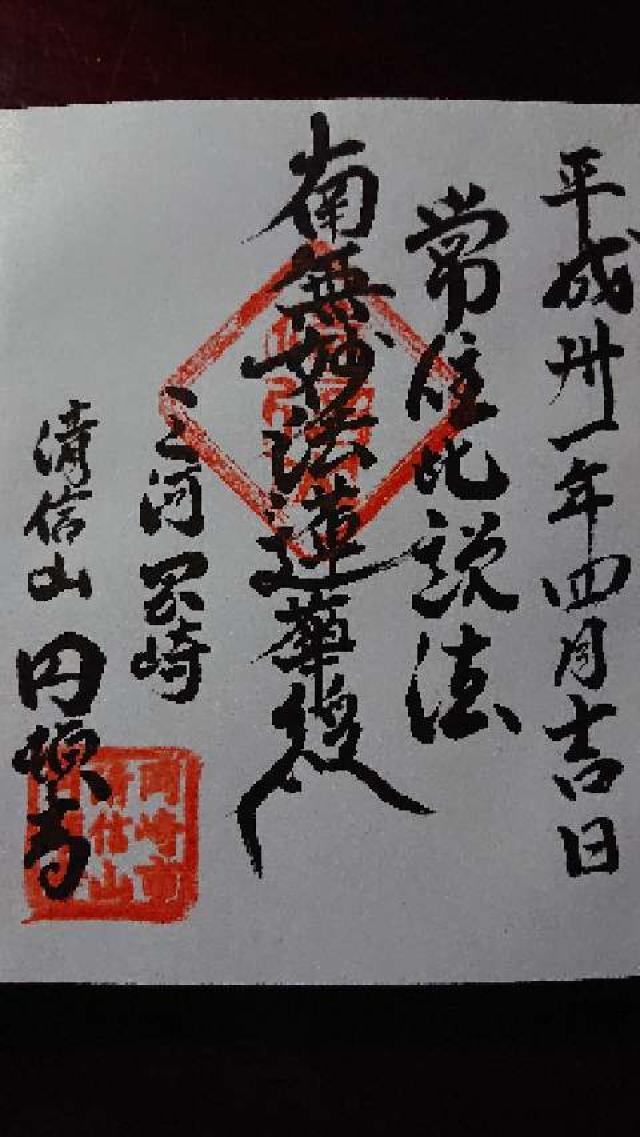 平成卅一年四月吉日
常住此説法
南無妙法蓮華経
三河岡崎
清信山 円頓寺
岡崎市
清信山